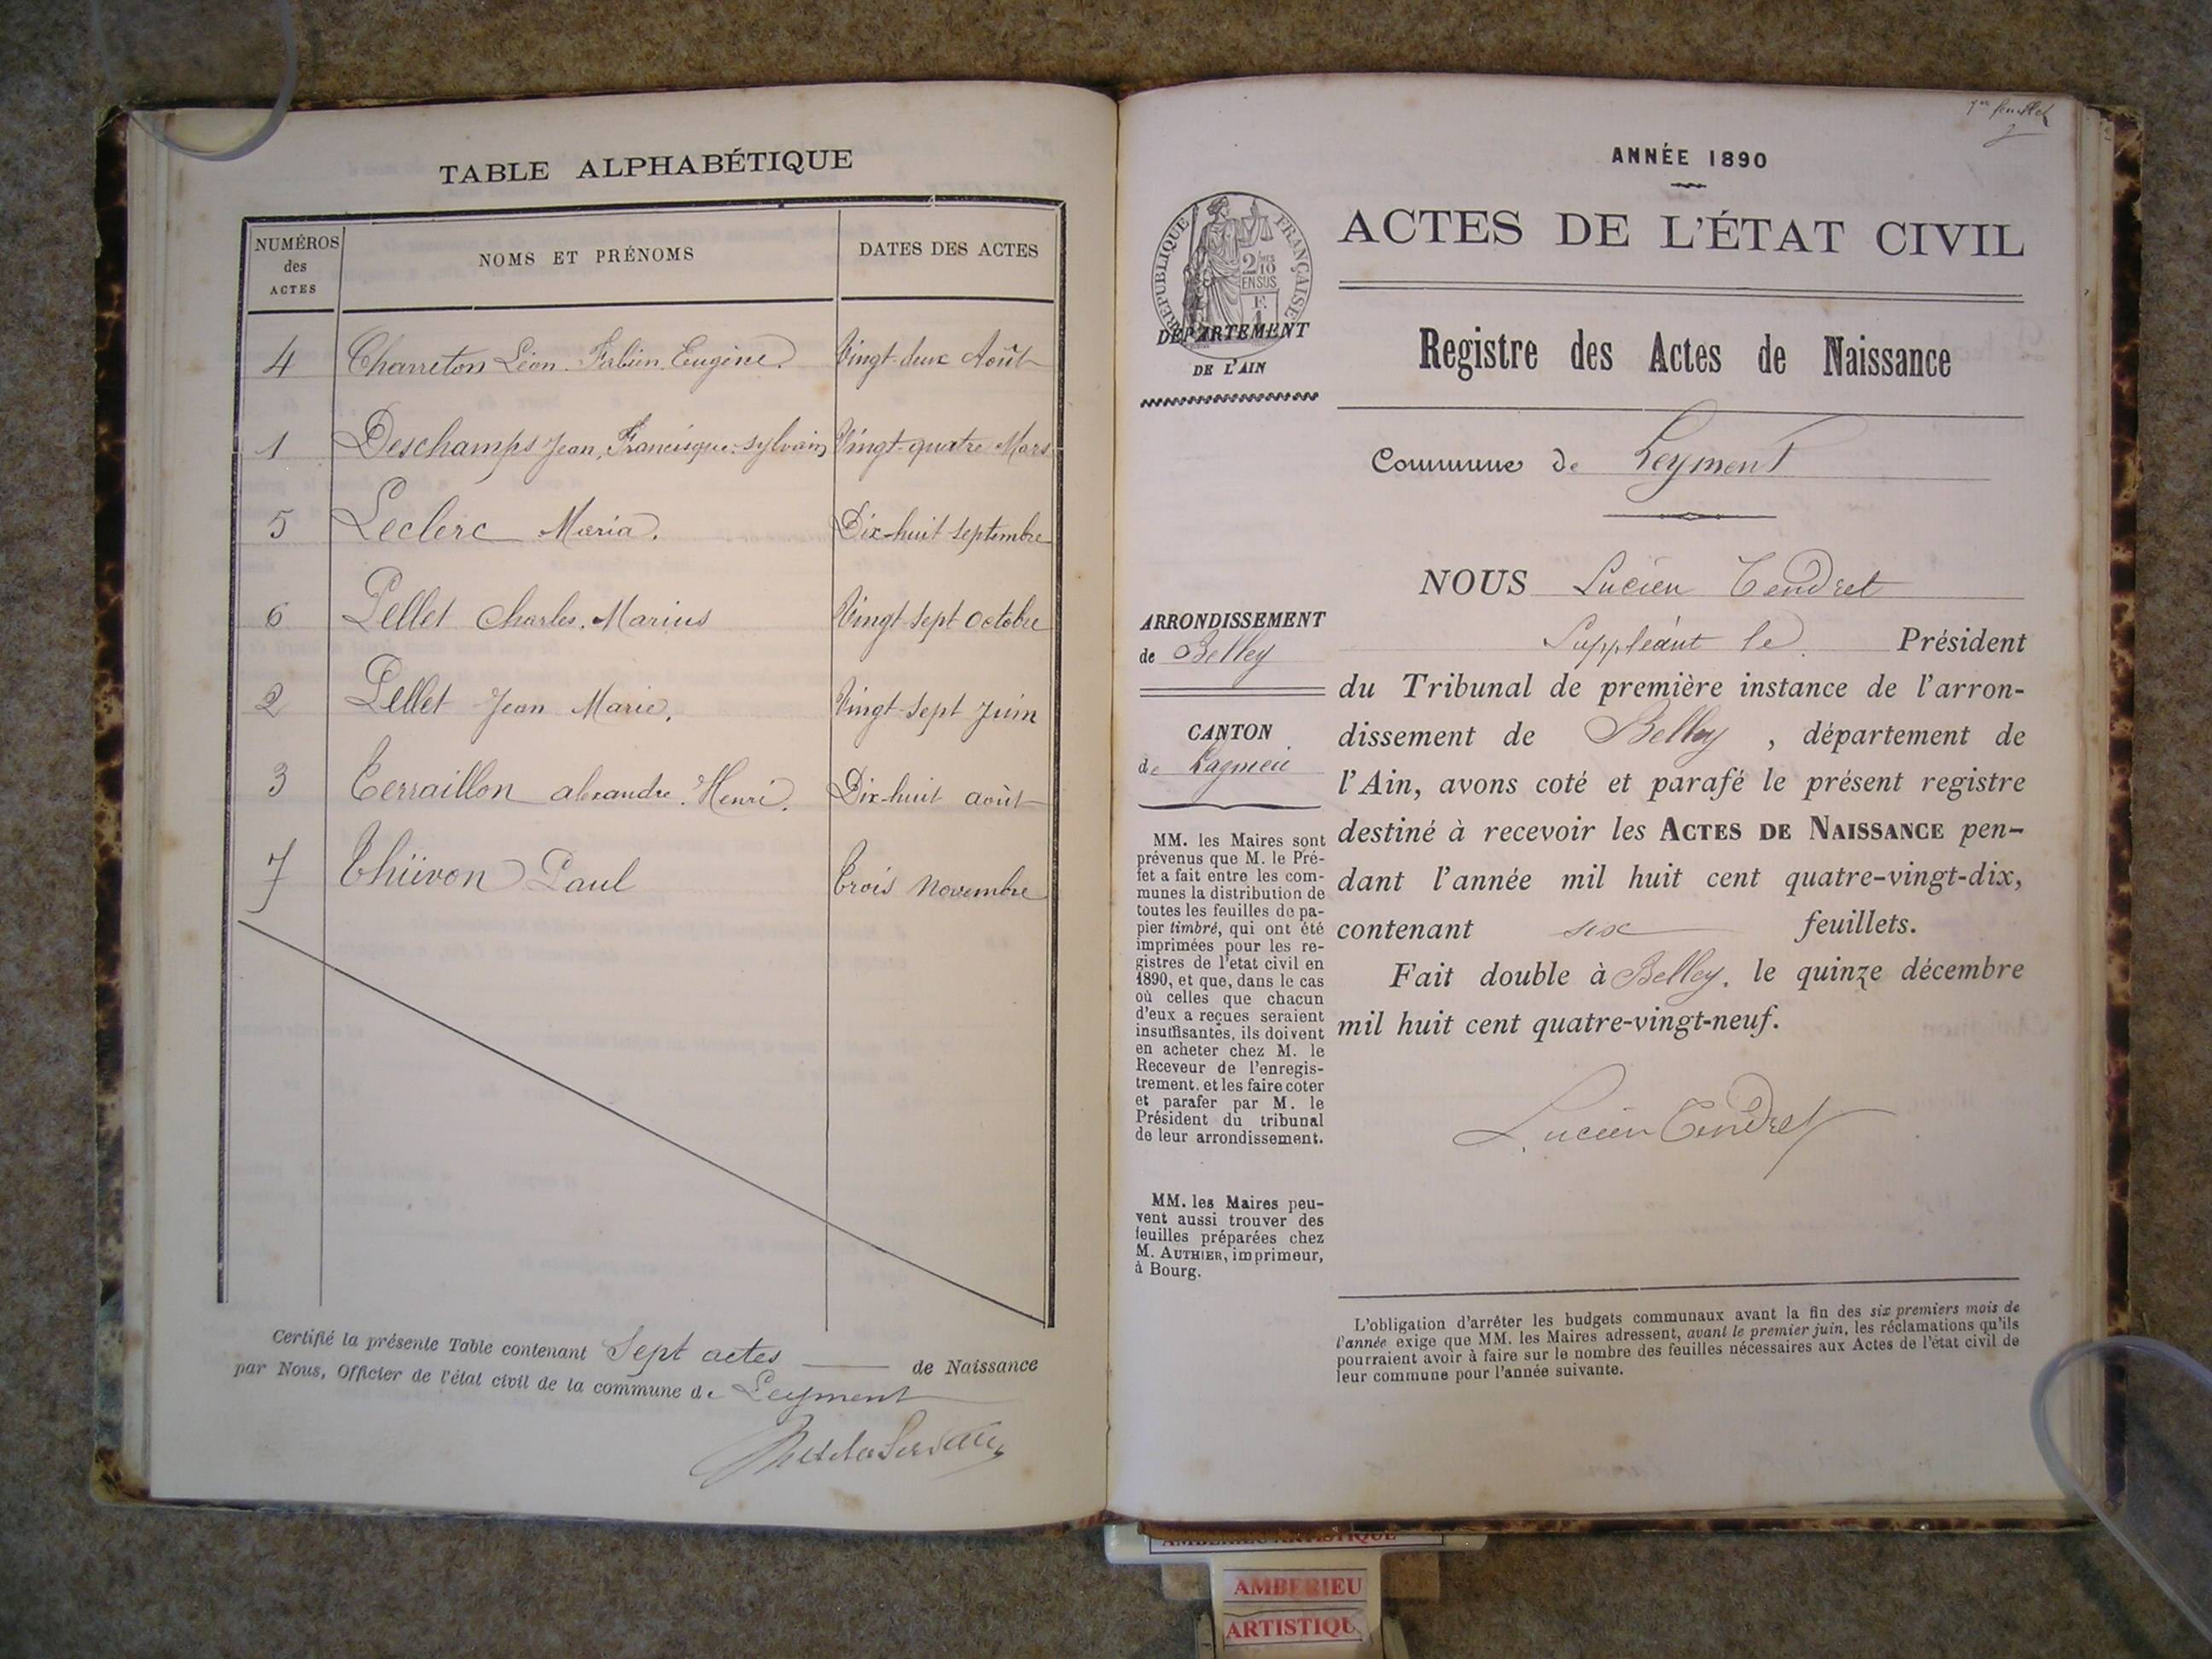 TABLE ALPHABÉTIQUE
NUMÉROS des ACTES NOMS ET PRÉNOMS DATES DES ACTES
4 Charreton Léon. Fabien. Eugène. Vingt-deux Août
1 Deschamps Jean, Francisque-sylvain Vingt-quatre Mars
5 Leclerc Maria. Dix-huit septembre
6 Pellet Charles. Marius Vingt-sept octobre
2 Pellet Jean Marie. Vingt-sept Juin
3 Terraillon alexandre. Henri. Dix-huit août
7 Thüvon Paul Trois novembre
Certifié la présente Table contenant Sept actes de Naissance
par Nous, Officier de l'état civil de la commune de Leyment
1er feuillet
ANNÉE 1890
ACTES DE L'ÉTAT CIVIL
RÉPUBLIQUE FRANÇAISE
2/10 EN SUS
DÉPARTEMENT
DE L'AIN
Registre des Actes de Naissance
Commune de Leyment
NOUS Lucien Tendret
Suppléant le Président
du Tribunal de première instance de l'arron-
dissement de Belley, département de
l'Ain, avons coté et parafé le présent registre
destiné à recevoir les ACTES DE NAISSANCE pen-
dant l'année mil huit cent quatre-vingt-dix,
contenant six feuillets.
Fait double à Belley, le quinze décembre
mil huit cent quatre-vingt-neuf.
Lucien Tendret
ARRONDISSEMENT
de Belley
CANTON
de Lagnieu
MM. les Maires sont
prévenus que M. le Pré-
fet a fait entre les com-
munes la distribution de
toutes les feuilles de pa-
pier timbré, qui ont été
imprimées pour les re-
gistres de l'etat civil en
1890, et que, dans le cas
où celles que chacun
d'eux a reçues seraient
insuffisantes, ils doivent
en acheter chez M. le
Receveur de l'enregis-
trement, et les faire coter
et parafer par M. le
Président du tribunal
de leur arrondissement.
MM. les Maires peu-
vent aussi trouver des
feuilles préparées chez
M. AUTHIER, imprimeur,
à Bourg.
L'obligation d'arrêter les budgets communaux avant la fin des six premiers mois de
l'année exige que MM. les Maires adressent, avant le premier juin, les réclamations qu'ils
pourraient avoir à faire sur le nombre des feuilles nécessaires aux Actes de l'état civil de
leur commune pour l'année suivante.
AMBERIEU ARTISTIQUE
AMBERIEU
ARTISTIQU